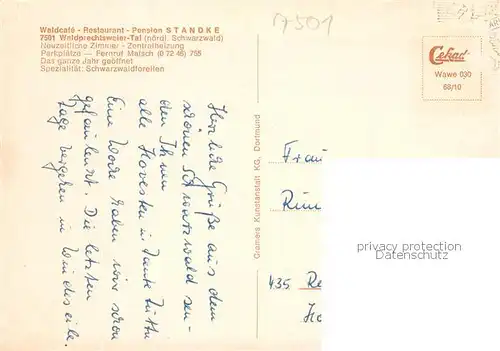 Waldcafé - Restaurant - Pension STANDKE
7501 Waldprechtsweier-Tal (nördl. Schwarzwald)
Neuzeitliche Zimmer - Zentralheizung
Parkplätze — Fernruf Malsch (0 72 46) 755
Das ganze Jahr geöffnet
Spezialität: Schwarzwaldforellen
7501
Cekad
Wawe 030
68/10
Cramers Kunstanstalt KG, Dortmund
Herzliche Grüße aus dem
schönen Schwarzwald sen-
den Ihnen
alle und Tante
Eine Woche haben wir schon
gefaulenzt. Die letzten
Tage vergehen in Windeseile.
Frau
435 Re
privacy protection
watermark